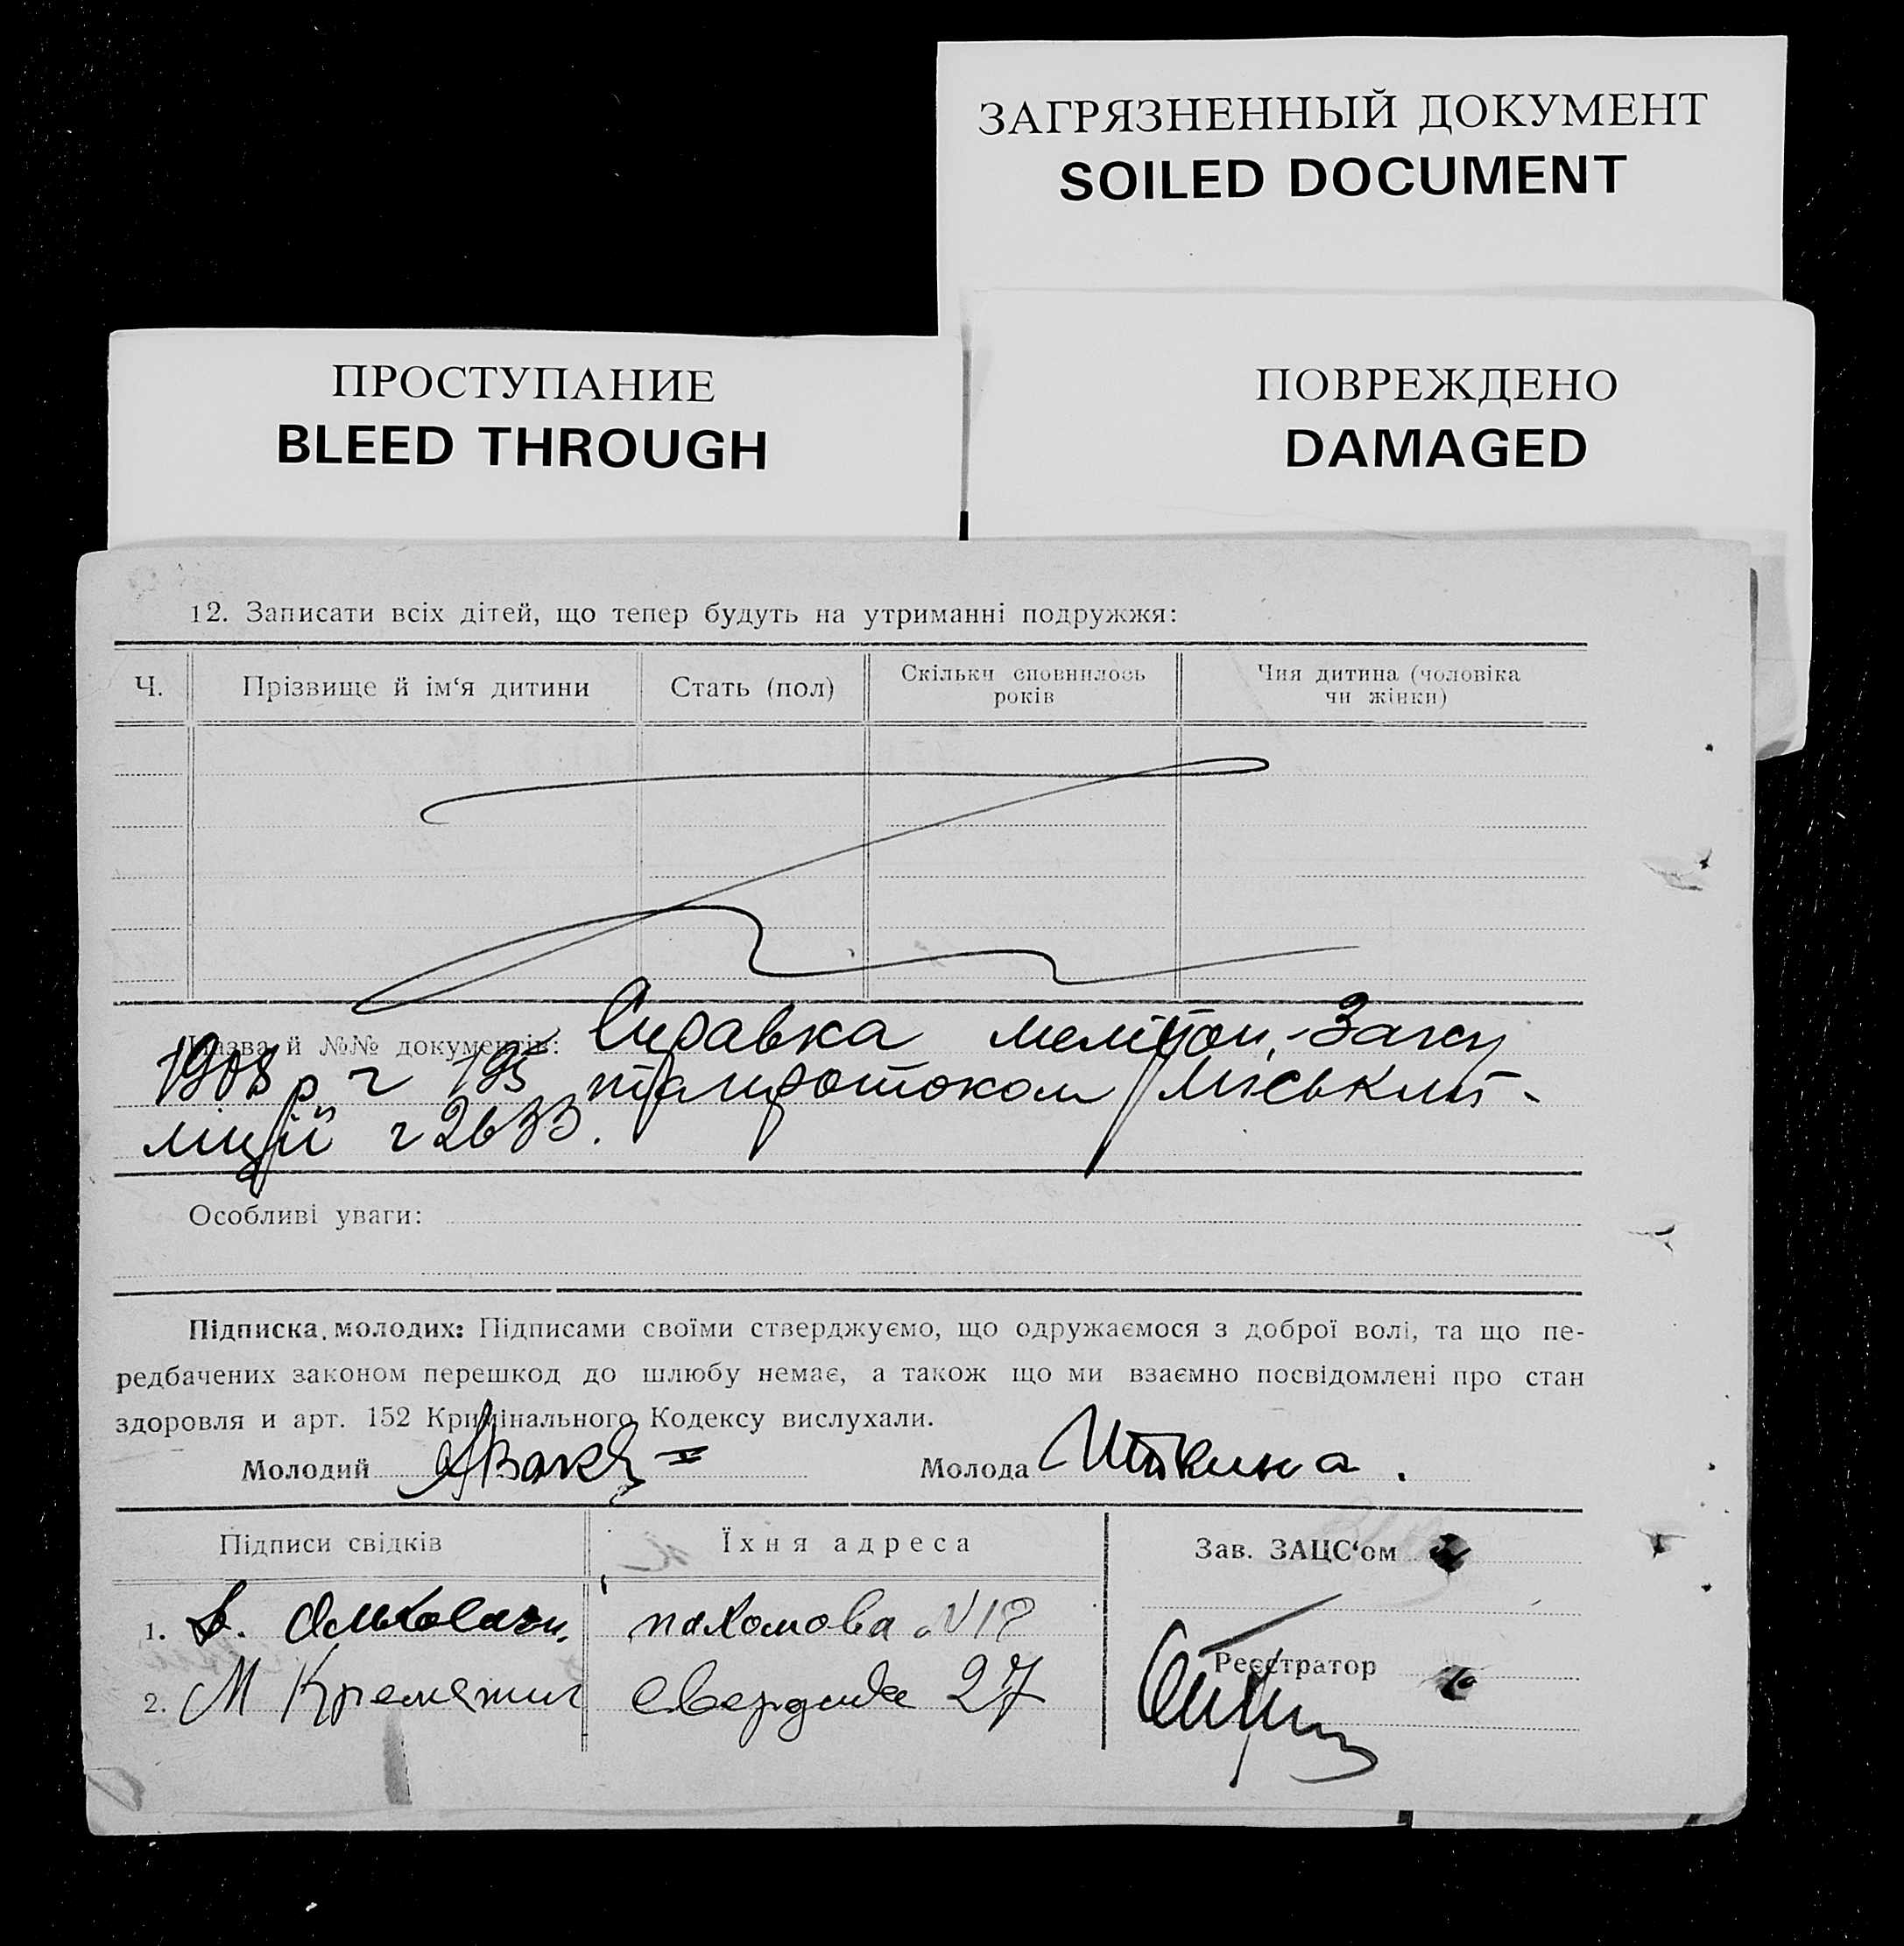 ЗАГРЯЗНЕННЫЙ ДОКУМЕНТ
SOILED DOCUMENT
ПРОСТУПАНИЕ
BLEED THROUGH
ПОВРЕЖДЕНО
DAMAGED
12. Записати всіх дітей, що тепер будуть на утриманні подружжя:
Ч.
Прізвище й ім‘я дитини
Стать (пол)
Скільки сповнилось
років
Чия дитина (чоловіка
чи жінки)
Назва й №№ документів: Справка Заксу
1908 р ч 195 та протоком Міської
міліції ч 2633.
Особливі уваги:
Підписка молодих: Підписами своїми стверджуємо, що одружаємося з доброї волі, та що пе-
редбачених законом перешкод до шлюбу немає, а також що ми взаємно посвідомлені про стан
здоровля и арт. 152 Кримінального Кодексу вислухали.
Молодий
Молода Иткина.
Підписи свідків
Їхня адреса
Зав. ЗАЦС‘ом
1.
пахомова №
2. М
свердлова 27
Реєстратор